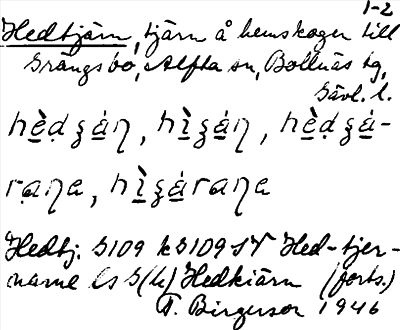 1-2
Hedtjärn, tjärn å hemskogen till
Grängsbo, Alfta sn, Bollnäs tg,
Gävl. l.
hè̱ḍʒá̱ṇ, hì̱ʒá̱ṇ, hè̱ḍʒá̱-
rạṇa, hì̱ʒá̱raṇa
Hedtj. S109 k S109 SV Hed-tjer-
narne Ls S(k) Hedkiärn (forts.)
F. Birgerson 1946